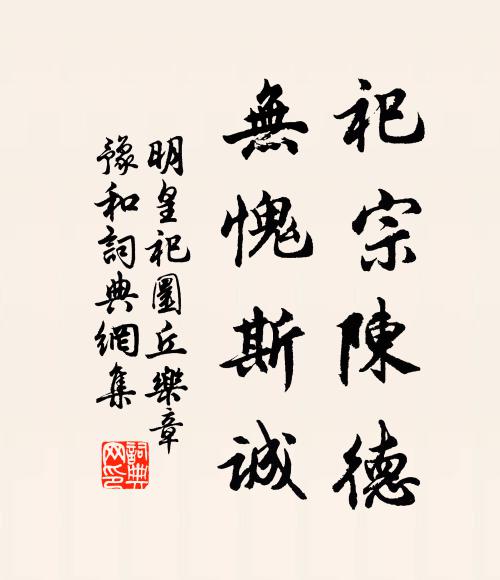 祀宗陳德
無愧斯誠
明皇祀圜丘樂章
豫和詞典網集
詞典
网印